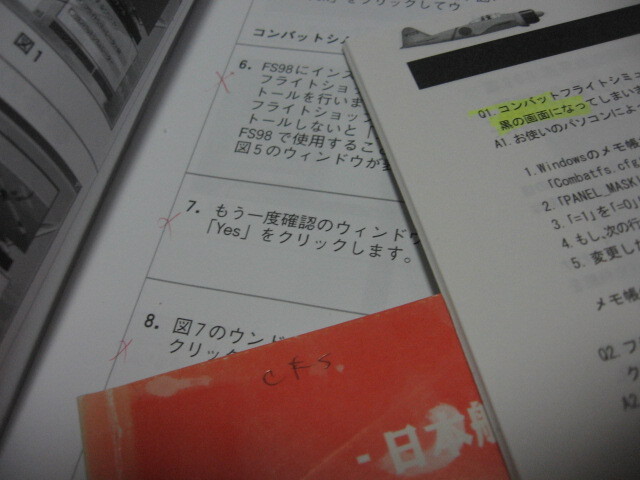 図1
クリックしてウ
コンバットシ
6. FS98にインス
フライトショッ
トールを行いま
フライトショップ
トールしないと「
FS98で使用するこ
図5のウィンドウが
7. もう一度確認のウィンドウ
「Yes」をクリックします。
8. 図7のウンド
クリック
CFS
日本
Q1. コンバットフライトシミュ
黒の画面になってしまいま
A1. お使いのパソコンによ
1. Windowsのメモ帳
「Combatfs.cfg
2. 「PANEL_MASK
3. 「=1」を「=0」
4. もし、次の行
5. 変更した
メモ帳
Q2. フ
ク
A2